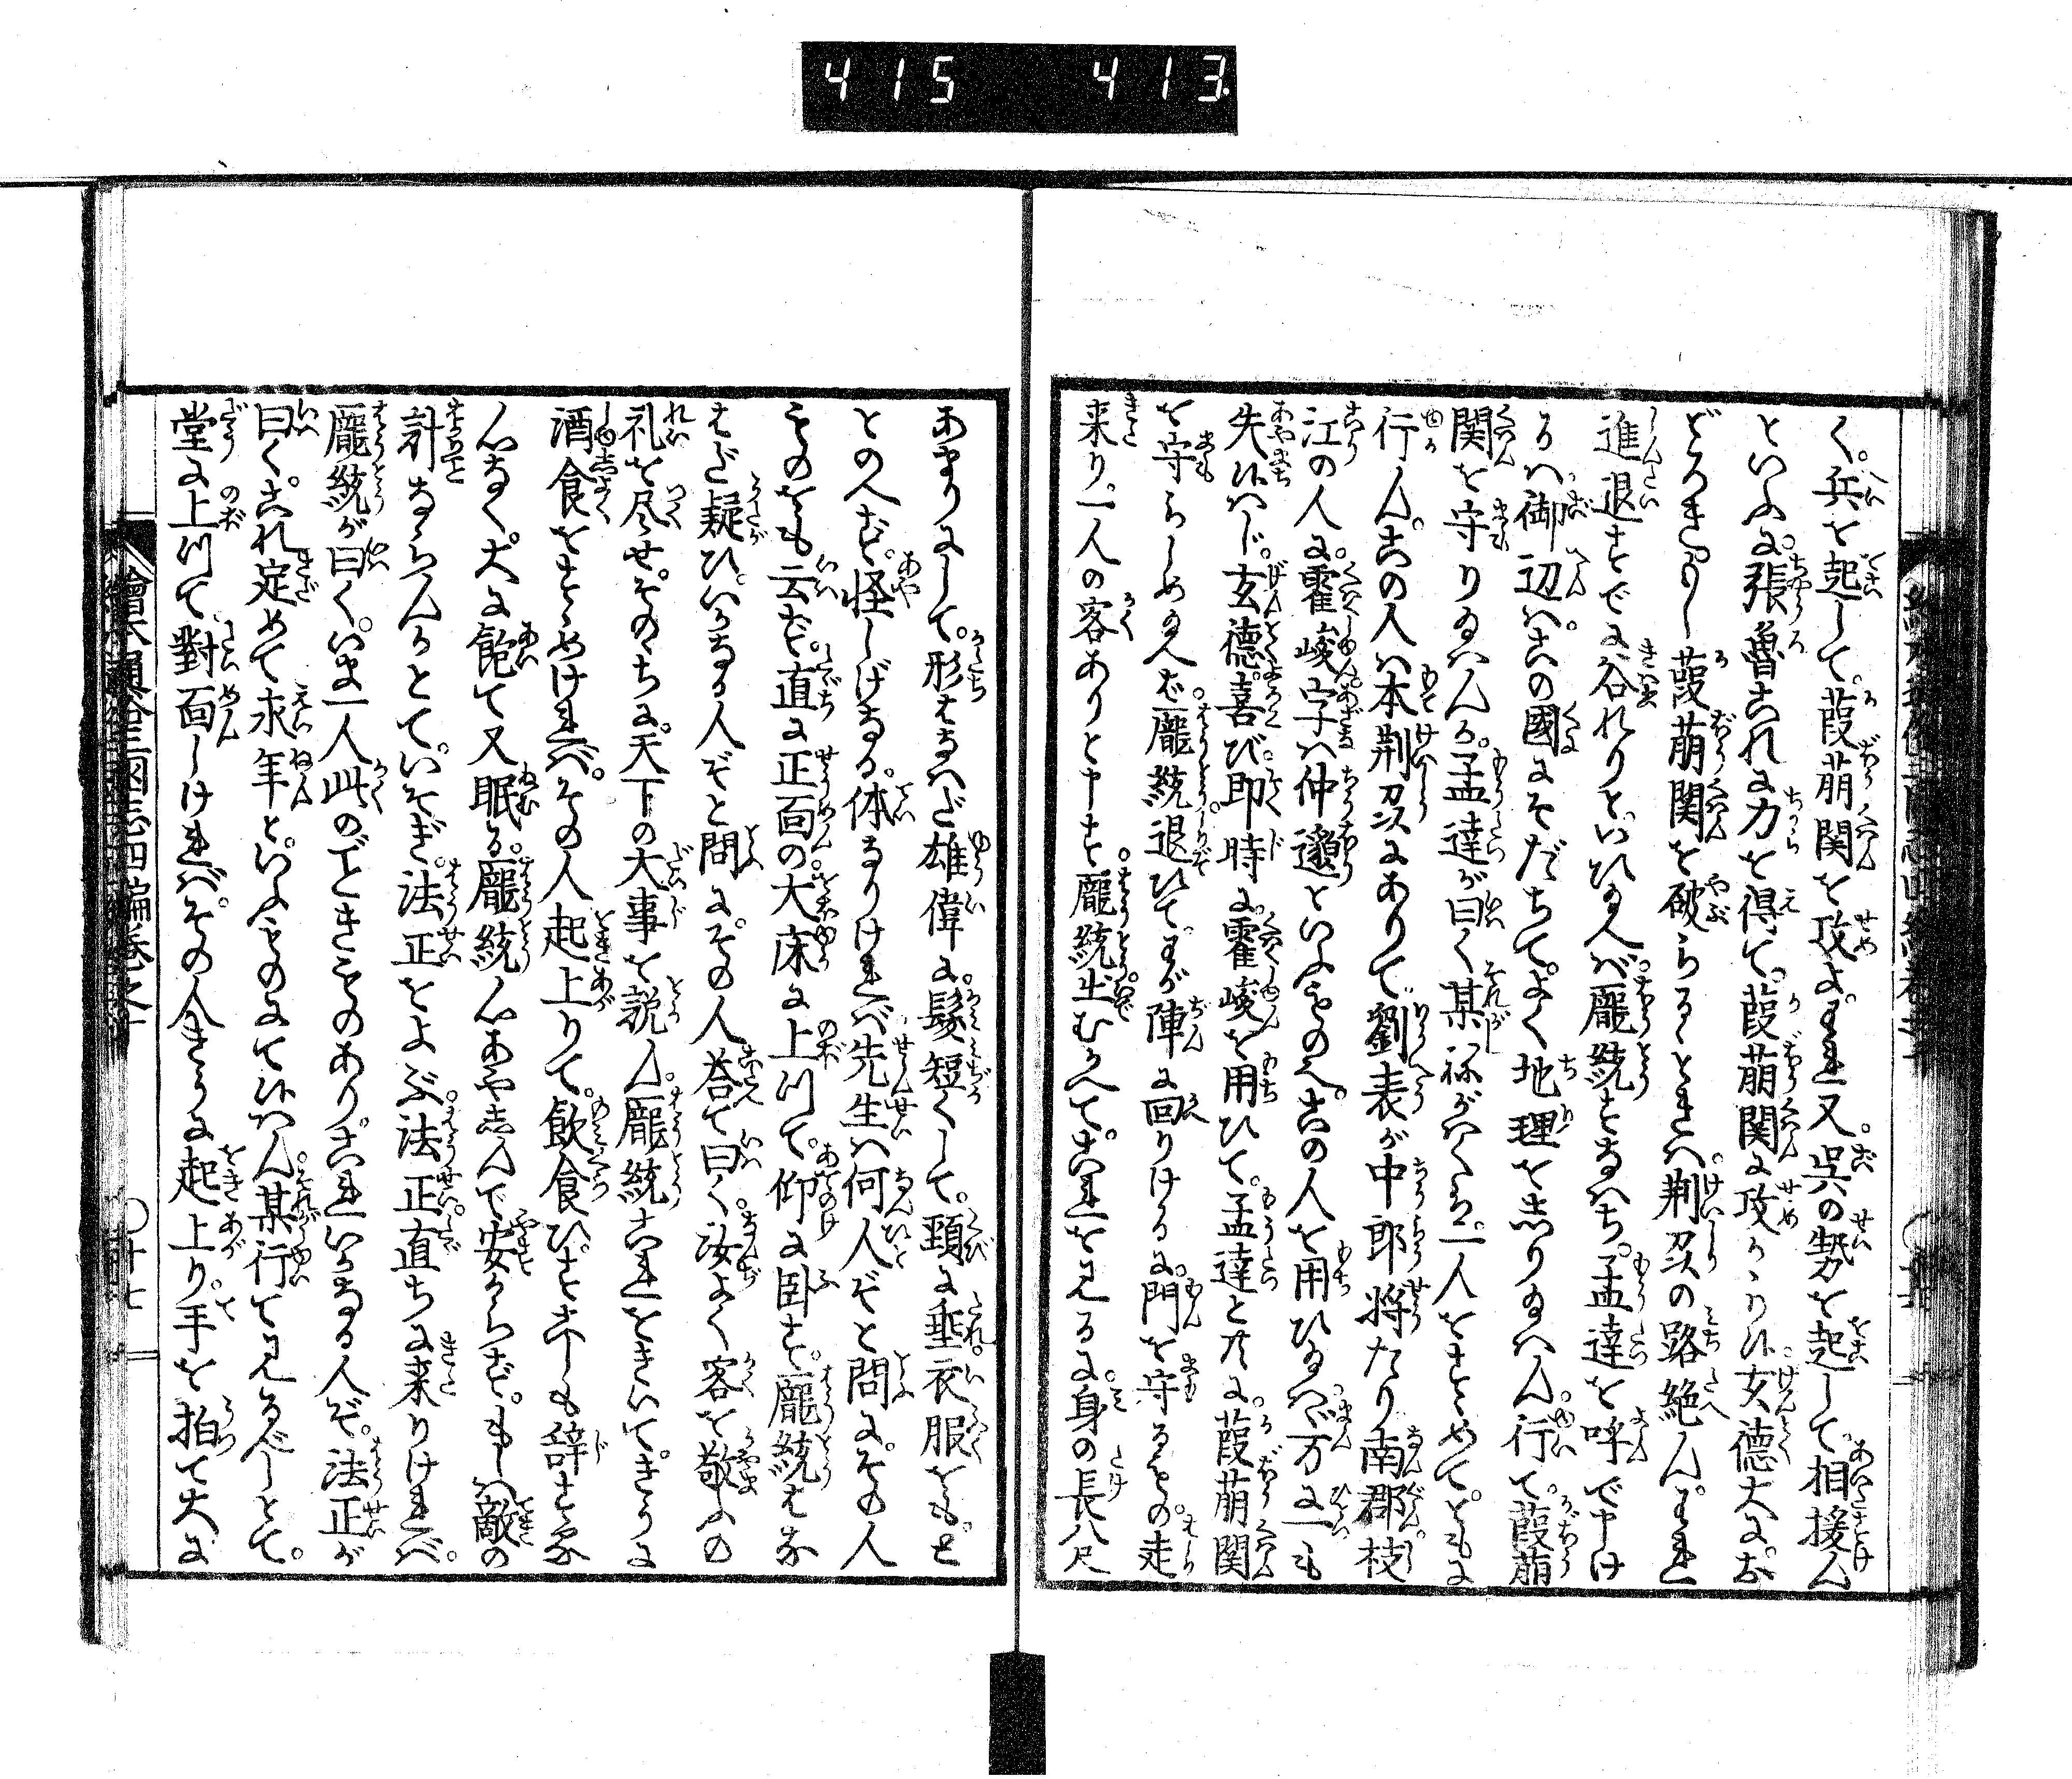 415 413
く。兵を起して。葭萌関を攻よ。われ又。呉の勢を起して相援ん
といふ。張魯これに力を得て。葭萌関に攻かゝり候。玄徳大にお
どろきわし葭萌関を破らるゝときは。荆州の路絶ん。われ
進退すでに谷れりといひ給へば。龐統すなはち。孟達を呼で申け
るは。御辺は。この國にそだちてよく地理をしり給はん。行て。葭萌
関を守り給はんか。孟達が曰く某ねがはくは。一人をすゝめて。ともに
行ん。この人は本荆州にありて。劉表が中郎将たり南郡枝
江の人に。霍峻字は仲邈といふもの也。この人を用ひ給はゞ。万に一も
失候はじ。玄徳喜び。即時に。霍峻を用ひて。孟達と共に。葭萌関
を守らしめ給ふ。龐統退ひて。わが陣に回りけるに。門を守るもの。走
来り。一人の客ありと申す。龐統出むかへて。これを見るに。身の長八尺
あまりにして。形すなはだ雄偉に。髪短くして。頸に垂。衣服をもとゝ
とのへず。怪しげなる。体なりければ。先生は何人ぞと問に。その人
ものをも云ず。直に正面の。大床に上りて。仰に臥す。龐統はな
はだ疑ひ。いかなる人ぞと問に。その人答て曰く。汝よく客を敬ふの
礼を尽せ。そのゝちに。天下の大事を説ん。龐統これをきいて。きうに
酒食をすゝめければ。その人起上りて。飲食ひ。すこしも辞する
心なく。大に飽て又眠る。龐統心あやしんで安からず。もしは敵の
計ならんかとて。いそぎ。法正をよぶ。法正直ちに来りければ。
龐統が曰く。いま一人此のごときものあり。これいかなる人ぞ。法正が
曰く。これ定めて永年といふものにて候はん。某行て見るべしとて。
堂に上りて。對面しければ。その人きうに起上り。手を拍て大に
繪本通俗三國志四編巻之十
〇十七